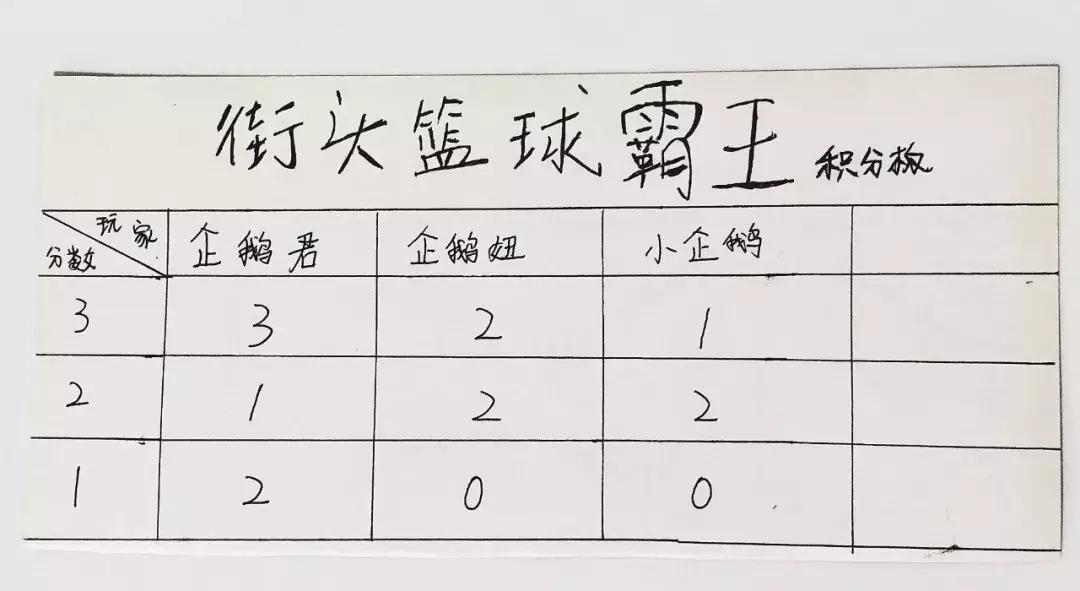 街头篮球霸王 积分板
玩家 企鹅君 企鹅妞 小企鹅
分数
3 3 2 1
2 1 2 2
1 2 0 0